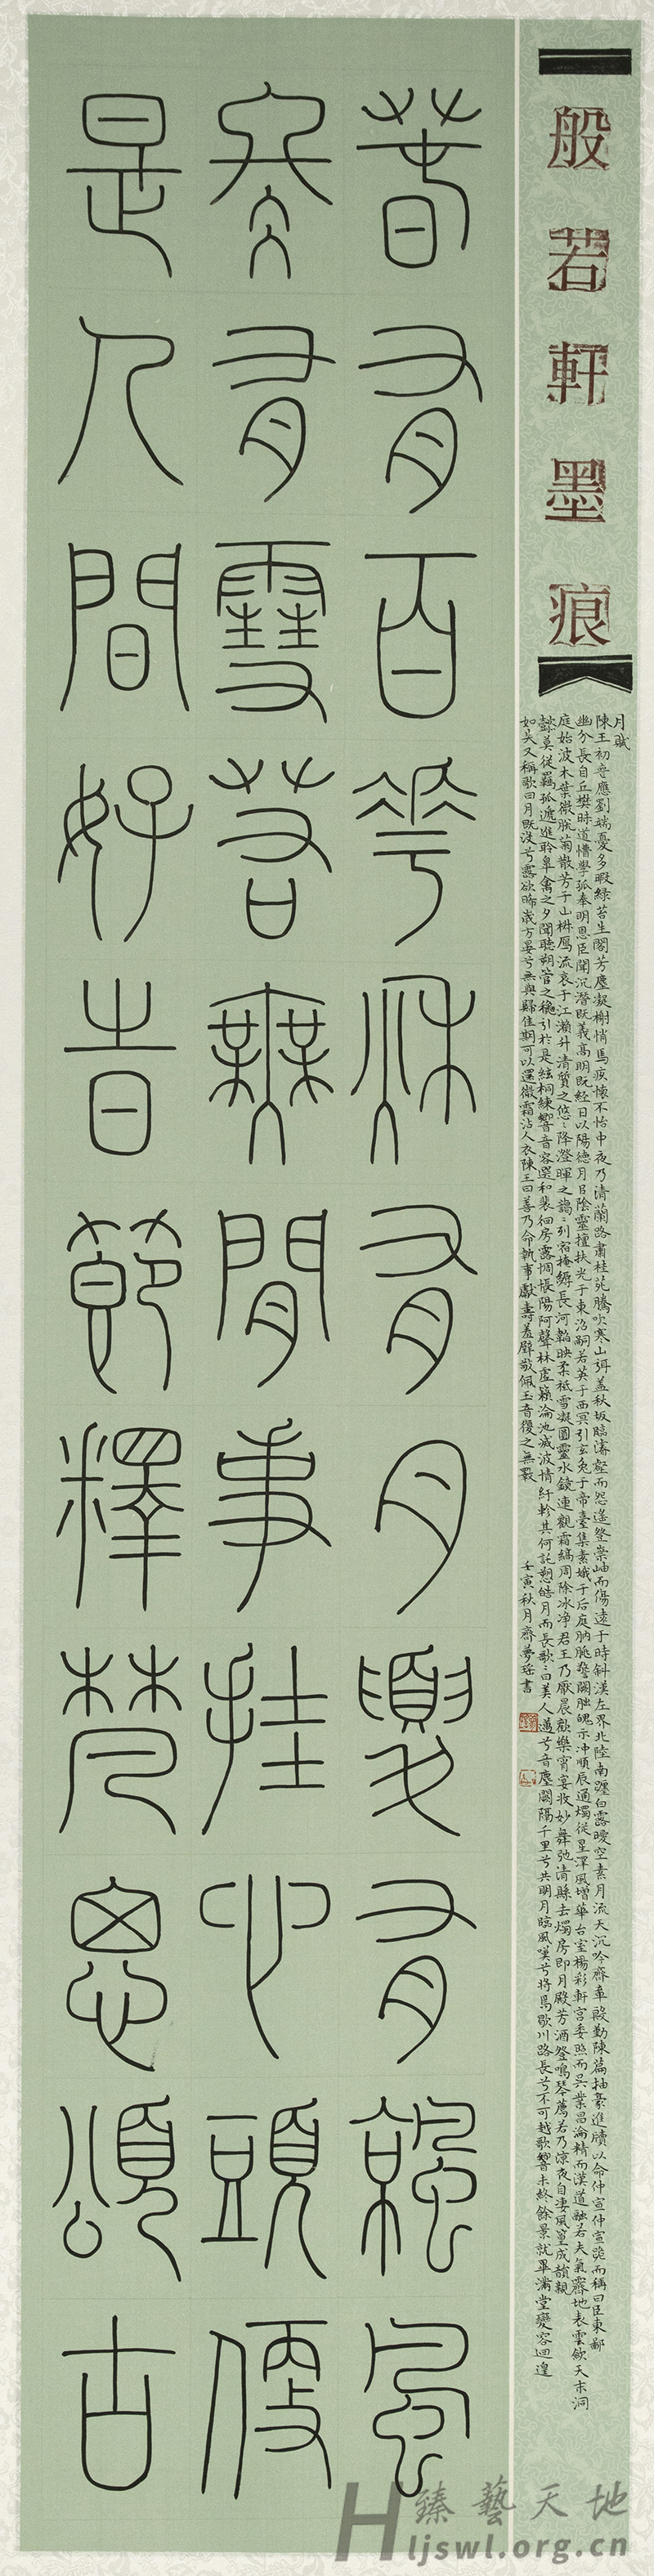 般若軒墨痕
月賦
陳王初喪應劉端憂多暇綠苔生閣芳塵凝榭悄焉疚懷不怡中夜乃清蘭路肅桂苑騰吹寒山弭蓋秋坂臨濬壑而怨遙登崇岫而傷遠于時斜漢左界北陸南躔白露曖空素月流天沉吟齊章殷勤陳篇抽毫進牘以命仲宣仲宣跪而稱曰臣東鄙
幽介長自丘樊昧道懵學孤奉明恩臣聞沉潛既義高明既經日以陽德月以陰靈擅扶光于東沼嗣若英于西冥引玄兔于帝臺集素娥于后庭朒朓警闕朏魄示冲順辰通燭從星澤風增華台室揚彩軒宮委照而吳業昌淪精而漢道融若夫氣霽地表雲斂天末洞
庭始波木葉微脫菊散芳于山椒雁流哀于江瀨升清質之悠〻降澄暉之藹〻列宿掩縟長河韜映柔祇雪凝圓靈水鏡連觀霜縞周除冰淨君王乃厭晨歡樂宵宴收妙舞弛清縣去燭房即月殿芳酒登鳴琴薦若乃涼夜自淒風篁成韻親
懿莫從羈孤遞進聆皐禽之夕聞聽朔管之秋引於是絃桐練響音容選和裴徊房露惆悵陽阿聲林虛籟淪池滅波情紆軫其何託愬皓月而長歌〻曰美人邁兮音塵闕隔千里兮共明月臨風嘆兮將焉歇川路長兮不可越歌響未終餘景就畢滿堂變容迴遑
如失又稱歌曰月既沒兮露欲晞歲方晏兮無與歸佳期可以還微霜沾人衣陳王曰善乃命執事獻壽羞璧敬佩玉音復之無斁
壬寅秋月齋夢瑤書
春有百花秋有月夏有涼風
冬有雪若無閒事挂心頭便
是人間好旹節釋梵思頌古
臻藝天地
Hljswl.org.cn